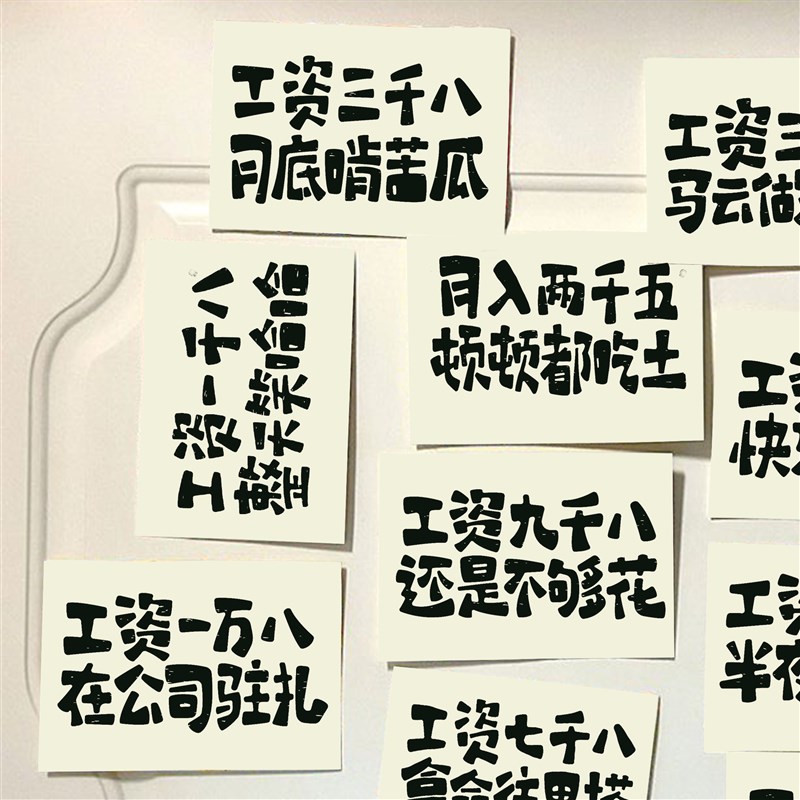 工资三千八
月底啃苦瓜
工资三
马云做
工资一千八
整天笑哈哈
月入两千五
顿顿都吃土
工
快
工资九千八
还是不够花
工资一万八
在公司驻扎
工
半夜
工资七千八